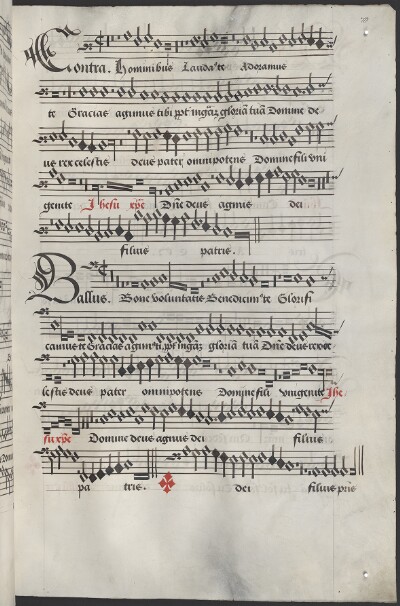 Contra. Hominibus Laudate Adoramus
te Gracias agimus tibi ppt ingāz gloriā tuā Domine de
us rex celestis deus pater omnipotens Domine fili vni
genite Jhesu xp̄e Dn̄e deus agnus dei
filius patris.
Bassus. Bone voluntatis Benedicim9te Glorifi
camus te Gracias agim9 ti. ppt ingāz gloriā tuā Dn̄e deus rex ce
lestis deus pater omnipotens Domine fili vnigenite Jhe
su xp̄e Domine deus agnus dei filius
pa tris. dei filius pr̄is